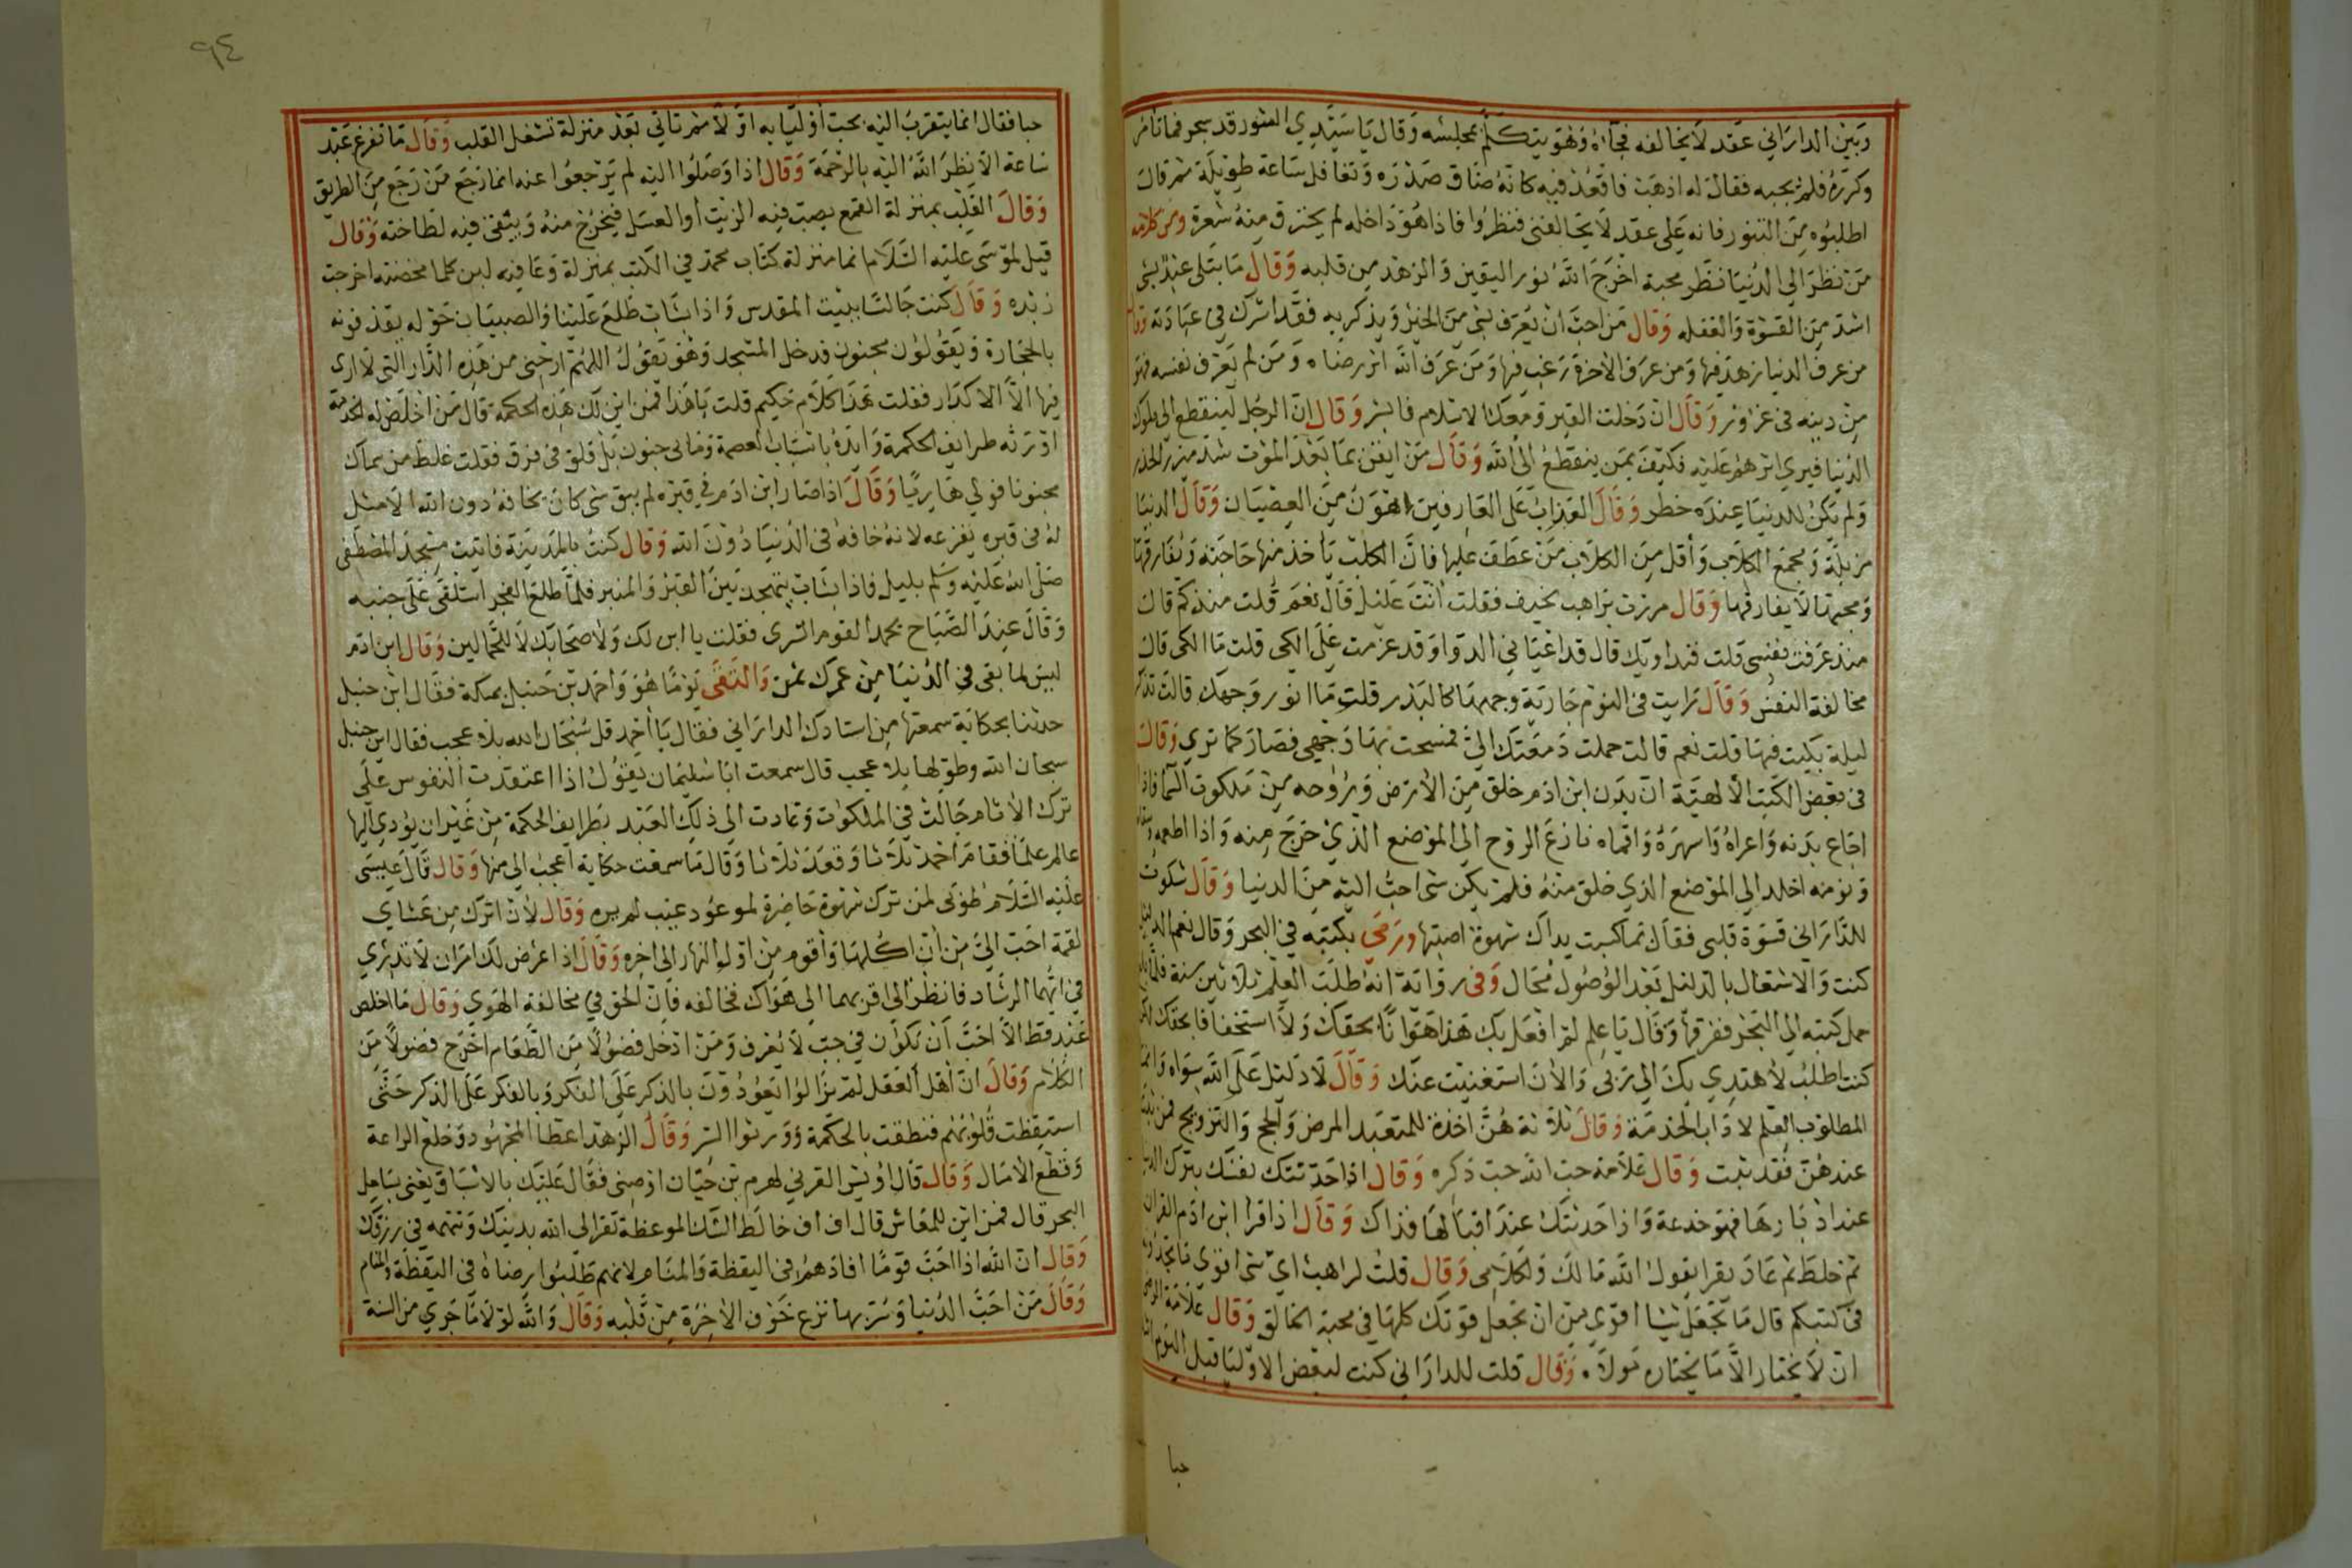 وبين الداراني عقد لا يخالفه فجاءه وهو يتكلم بمجلسه وقال يا سيدي التنور قد سجر فما تأمر
وكرره فلم يجبه فقال له اذهب فاقعد فيه كانه ضاق صدره وتغافل ساعة طويلة ثم قال
اطلبوه من التنور فانه على عقد لا يخالفنى فنظروا فاذا هو داخله لم يحترق منه شعرة ومن كلامه
من نظر الى الدنيا نظر محبة اخرج الله نور اليقين والزهد من قلبه وقال ما ابتلى عبد بشى
اشد من القسوة والغفله وقال من احب ان يعرف بشي من الخير ويذكر به فقد اشرك في عبادته وقال
من عرف الدنيا زهد فيها ومن عرف الاخرة رغب فيها ومن عرف الله اثر رضاه ومن لم يعرف نفسه فهو
من دينه في غرور وقال ان دخلت القبر ومعك الاسلام فابشر وقال ان الرجل لينقطع الى ملوك
الدنيا فيرى اثرهم عليه فكيف بمن ينقطع الى الله وقال من ايقن بما بعد الموت شد ميزر الحذر
ولم يكن للدنيا عنده خطر وقال العذاب على العارفين اهون من العصيان وقال الدنيا
مزبلة ومجمع الكلاب واقل من الكلاب من عطف عليها فان الكلب ياخذ منها حاجته ويفارقها
ومحبها لا يفارقها وقال مررت براهب نحيف فقلت انت عليل قال نعم قلت منذ كم قال
منذ عرفت نفسى قلت فتداويك قال قد اعيانى الدوا وقد عزمت على الكى قلت ما الكى قال
مخالفة النفس وقال رايت في النوم جارية وجهها كالبدر قلت ما انور وجهك قالت تذكر
ليلة بكيت فيها قلت نعم قالت حملت دمعتك الي فمسحت بها وجهى فصار كما ترى وقال
في بعض الكتب الالهية ان بدن ابن ادم خلق من الارض وروحه من ملكوت السما فاذا
اجاع بدنه واعراه واسهره واقماه نازع الروح الى الموضع الذي خرج منه واذا اطعمه وسقاه
ونومه اخلد الى الموضع الذي خلق منه فلم يكن شى احب اليه من الدنيا وقال شكوت
للدارانى قسوة قلبى فقال بما كسبت يداك شهوة اصبتها ورمى بكتبه في البحر وقال نعم الدليل
كنت والاشتغال بالدليل بعد الوصول محال وفى رواية انه طلب العلم ثلاثين سنة فلما
حمل كتبه الى البحر فغرقها وقال يا علم لم افعل بك هذا هوانا بحقك ولا استخفافا بحقك لكن
كنت اطلب لاهتدي بك الى ربى والان استغنيت عنك وقال لا دليل على الله سواه وانما
المطلوب العلم لاداب الخدمة وقال ثلاثة هن اخذة للمتعبد المرض والحج والتزويج فمن ثبت
عندهن فقد ثبت وقال علامة حب الله حب ذكره وقال اذا حدثتك نفسك بترك الدنيا
عند ادبارها فهو خدعة واذا حدثتك عند اقبالها فذاك وقال اذا قرا ابن ادم القران
ثم خلط ثم عاد يقرا يقول الله مالك ولكلامى وقال قلت لراهب اي شى اقوى ما تجدونه
فى كتبكم قال ما نجد شيئا اقوى من ان تجعل قوتك كلها فى محبة الخالق وقال علامة الرضى
ان لا يختار الا ما يختاره مولاه. وقال قلت للدارانى كنت لبعض الاوليا قبل اليوم
حبا
٩٤
حبا فقال انما يتقرب اليه بحب اوليايه اولا ثم تاتي بعد منزلة تشغل القلب وقال ما تفرغ عبد
ساعة الا نظر الله اليه بالرحمة وقال اذا وصلوا اليه لم يرجعوا عنه انما رجع من رجع من الطريق
وقال القلب بمنزلة القمع يصب فيه الزيت او العسل فيخرج منه ويبقى فيه لطاخته وقال
قيل لموسى عليه السلام انما منزلة كتاب محمد في الكتب بمنزلة وعا فيه لبن كلما مخضته اخرجت
زبده وقال كنت جالسا ببيت المقدس واذا بشاب طلع علينا والصبيان حوله يقذفونه
بالحجارة ويقولون مجنون فدخل المسجد وهو يقول اللهم ارحنى من هذه الدار التى لا ارى
فيها الا الاكدار فقلت هذا كلام حكيم قلت يا هذا فمن اين لك هذه الحكمة قال من اخلص له الخدمة
اورثه طرايف الحكمة وايده باسباب العصمة وما بى جنون بل قلق فى فرق فقلت غلط من سماك
مجنونا فولى هاربا وقال اذا صار ابن ادم فى قبره لم يبق شى كان يخافه دون الله الا مثل
له فى قبره يفزعه لانه خافه فى الدنيا دون الله وقال كنت بالمدينة فاتيت مسجد المصطفى
صلى الله عليه وسلم بليل فاذا بشاب يتهجد بين القبر والمنبر فلما طلع الفجر استلقى على جنبه
وقال عند الصباح يحمد القوم السرى فقلت يا ابن لك ولاصحابك لا للجمالين وقال ابن ادم
ليس لما بقى فى الدنيا من عمرك ثمن والتقى يوما هو واحمد بن حنبل بمكة فقال ابن حنبل
حدثنا بحكاية سمعتها من استادك الدارانى فقال يا احمد قل سبحان الله بلا عجب فقال ابن حنبل
سبحان الله وطولها بلا عجب قال سمعت ابا سليمان يقول اذا اعتقدت النفوس على
ترك الاثام جالت فى الملكوت وعادت الى ذلك العبد بطرايف الحكمة من غير ان يودى اليها
عالم علما فقام احمد ثلاثا وقعد ثلاثا وقال ما سمعت حكاية اعجب الى منها وقال قال عيسى
عليه السلام طوبى لمن ترك شهوة حاضرة لموعود غيب لم يره وقال لان اترك من عشاي
لقمة احب الي من ان اكلها واقوم من اول النهار الى اخره وقال اذا عرض لك امران لا تدرى
فى ايهما الرشاد فانظر الى اقربهما الى هواك فخالفه فان الحق في مخالفة الهوى وقال ما اخلص
عبد قط الا احب ان يكون في جب لا يعرف ومن ادخل فضولا من الطعام اخرج فضولا من
الكلام وقال ان اهل العقل لم يزالوا يعودون بالذكر على الفكر وبالفكر على الذكر حتى
استيقظت قلوبهم فنطقت بالحكمة وورثوا السر وقال الزهد اعطا المجهود وخلع الراحة
وقطع الامال وقال قال اويس القرني لهرم بن حيان اوصنى فقال عليك بالاسياف يعنى بساحل
البحر قال فمن اين المعاش قال اف اف خالط الشك الموعظة تفر الى الله بدينك وتتهمه في رزقك
وقال ان الله اذا احب قوما افادهم فى اليقظة والمنام لانهم طلبوا رضاه فى اليقظة والمنام
وقال من احب الدنيا وسر بها نزع خوف الاخرة من قلبه وقال والله لولا ما جرى من السنة